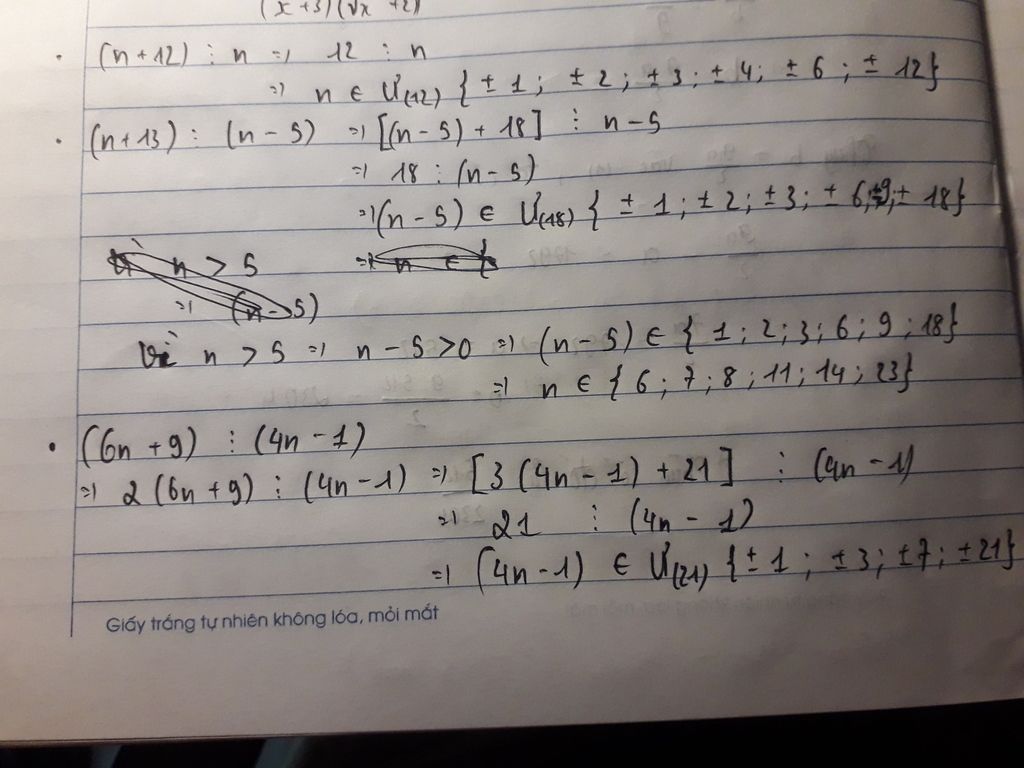 (x+3)(√x+2)
. (n+12) ⋮ n => 12 ⋮ n
=> n ∈ Ư(12) { ± 1 ; ± 2 ; ± 3 ; ± 4 ; ± 6 ; ± 12}
. (n+13) ⋮ (n - 5) => [(n - 5) + 18] ⋮ n - 5
=> 18 ⋮ (n - 5)
=> (n - 5) ∈ Ư(18) { ± 1 ; ± 2 ; ± 3 ; ± 6 ; ±9 ; ± 18}
n > 5 => n ∈ {
=> (n - 5)
Vì n > 5 => n - 5 > 0 => (n - 5) ∈ { 1 ; 2 ; 3 ; 6 ; 9 ; 18}
=> n ∈ { 6 ; 7 ; 8 ; 11 ; 14 ; 23}
• (6n + 9) ⋮ (4n - 1)
=> 2 (6n + 9) ⋮ (4n - 1) => [3 (4n - 1) + 21] ⋮ (4n - 1)
=> 21 ⋮ (4n - 1)
=> (4n - 1) ∈ Ư(21) { ± 1 ; ± 3 ; ± 7 ; ± 21}
Giấy trắng tự nhiên không lóa, mỏi mắt